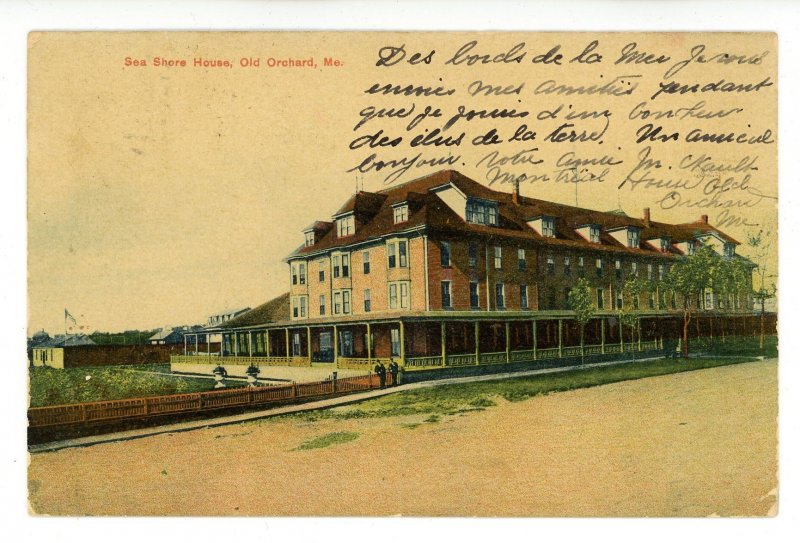 Sea Shore House, Old Orchard, Me.
Des bords de la Mer Je vous
envoies mes amitiés pendant
que je jouies d'un bonheur
des élus de la terre. Un amical
bonjour. Votre Amie M.
Montréal House Old
Orchard
Me